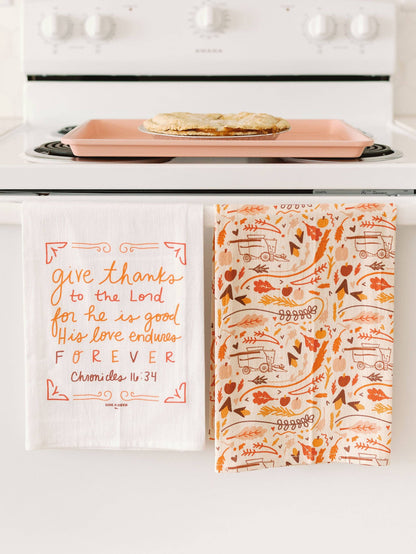 give thanks
to the Lord
for he is good
His love endures
FOREVER
Chronicles 16:34